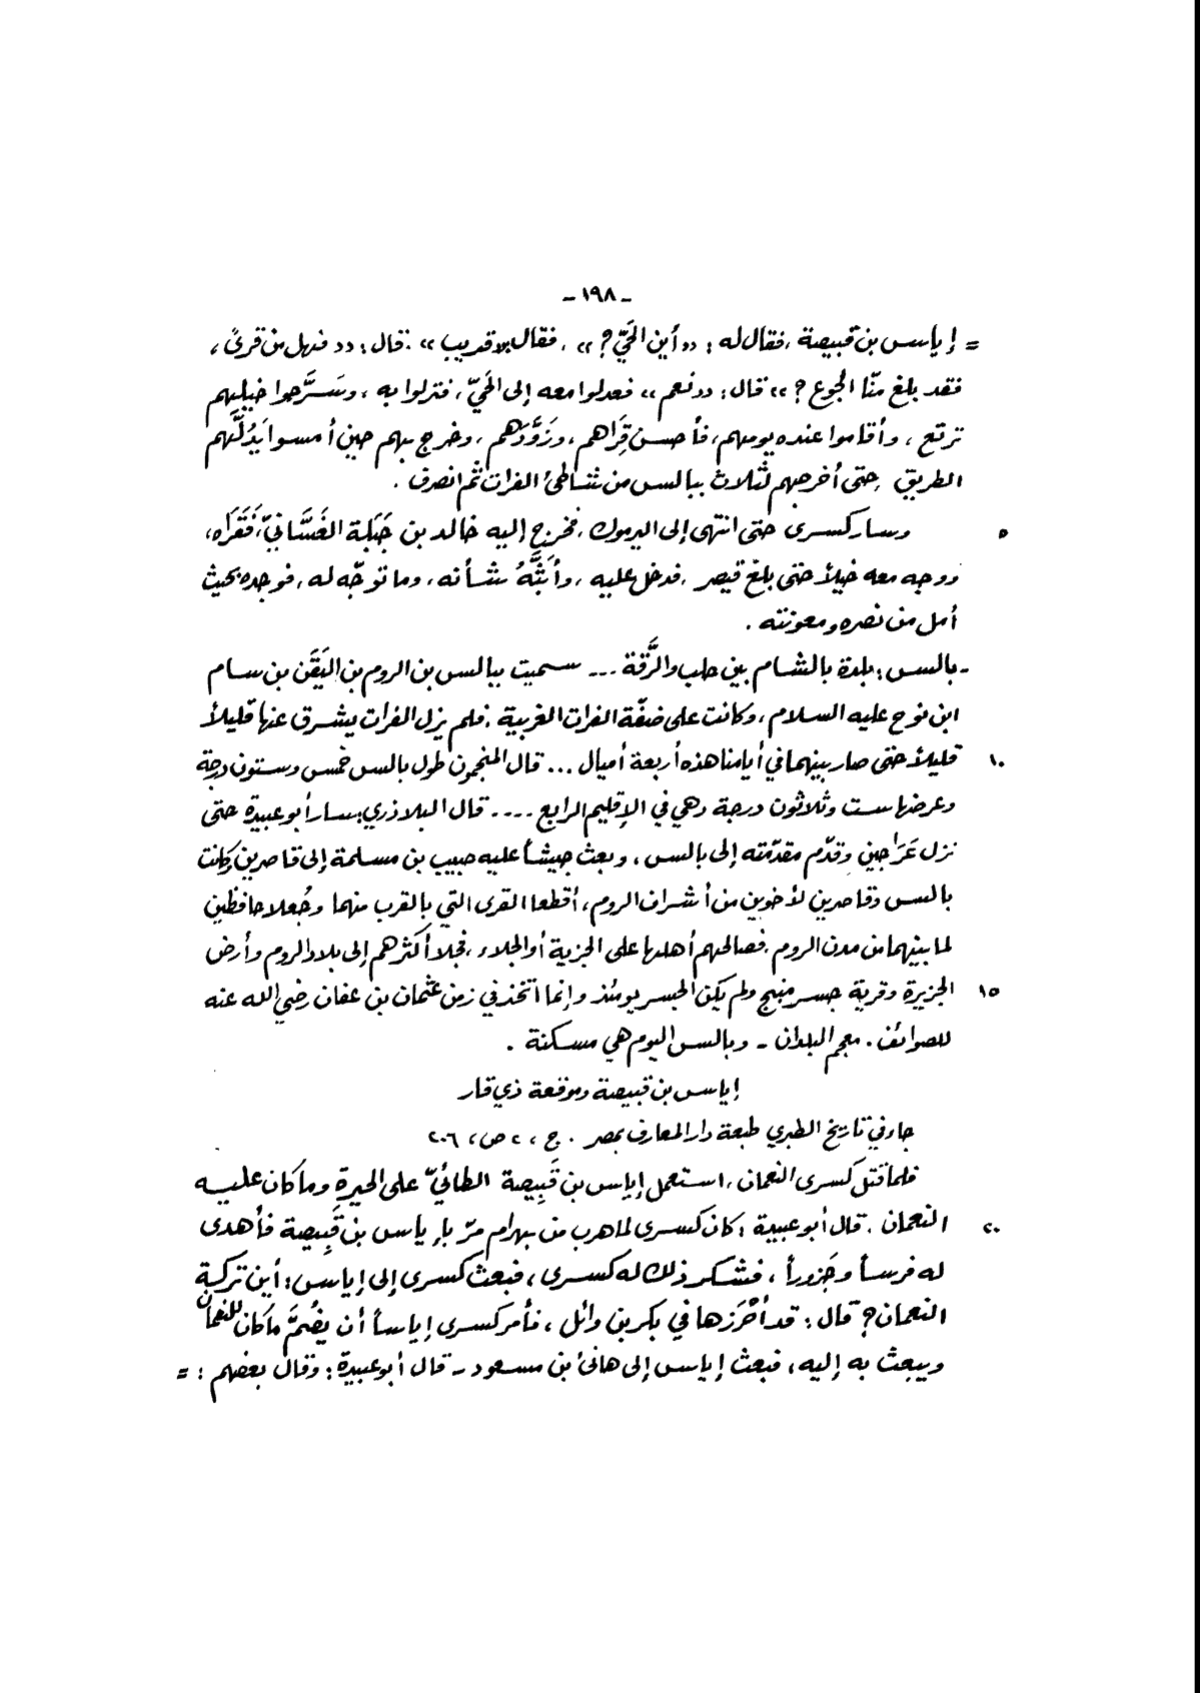 - ١٩٨ -
= إياس بن قبيصة ، فقال له : «أين الحَيّ ؟ » ، فقال «قريب» . قال : «فهل من قرىً ،
فقد بلغ منّا الجوع ؟ » قال : «نعم» فعدلوا معه إلى الحَيّ ، فنزلوا به ، وسَرَّحوا خيلهم
ترتع ، وأقاموا عنده يومهم ، فأحسن قِرَاهم ، وزَوَّدَهم ، وخرج بهم حين أمسوا يَدُلَّهم
الطريق ، حتى أخرجهم لثلاث ببالس من شاطئ الفرات ثم انصرف .
٥ وسار كسرى حتى انتهى إلى اليرموك ، فخرج إليه خالد بن جَبَلة الغَسَّانيّ ، فَقَرَاه ،
ووجه معه خيلاً حتى بلغ قيصر ، فدخل عليه ، وأَبَثَّهُ شأنه ، وما توجّه له ، فوجده بحيث
أمل من نصره ومعونته .
- بالس : بلدة بالشام بين حلب والرَّقة ... سميت ببالس بن الروم بن اليَقَن بن سام
ابن نوح عليه السلام ، وكانت على ضفّة الفرات الغربية ، فلم يزل الفرات يشرق عنها قليلاً
١٠ قليلاً حتى صار بينهما في أيامنا هذه أربعة أميال ... قال المنجمون طول بالس خمس وستون درجة
وعرضها ست وثلاثون درجة وهي في الإقليم الرابع .... قال البلاذري : سار أبو عبيدة حتى
نزل عَرَاجين وقدّم مقدّمته إلى بالس ، وبعث جيشاً عليه حبيب بن مسلمة إلى قاصرين وكانت
بالس وقاصرين لأخوين من أشراف الروم ، أقطعا القرى التي بالقرب منهما وجُعلا حافظين
لما بينهما من مدن الروم . فصالحهم أهلها على الجزية أو الجلاء ، فجلا أكثرهم إلى بلاد الروم وأرض
١٥ الجزيرة وقرية جسر منبج ولم يكن الجسر يومئذ وإنما اتخذ في زمن عثمان بن عفان رضي الله عنه
للصوائف . معجم البلدان - وبالس اليوم هي مسكنة .
إياس بن قبيصة وموقعة ذي قار
جاء في تاريخ الطبري طبعة دار المعارف بمصر . ج ، ٢ ص ، ٢٠٦
فلما قتل كسرى النعمان ، استعمل إياس بن قَبِيصة الطائيّ على الحيرة وما كان عليه
٢٠ النعمان . قال أبو عبيدة : كان كسرى لما هرب من بهرام مرّ بإياس بن قَبِيصة فأهدى
له فرساً وجَزوراً ، فشكر ذلك له كسرى ، فبعث كسرى إلى إياس : أين تركة
النعمان ؟ قال : قد أحْرَزها في بكر بن وائل ، فأمر كسرى إياساً أن يضُمَّ ما كان للنعمان
ويبعث به إليه ، فبعث إياس إلى هانئ بن مسعود - قال أبو عبيدة : وقال بعضهم : =